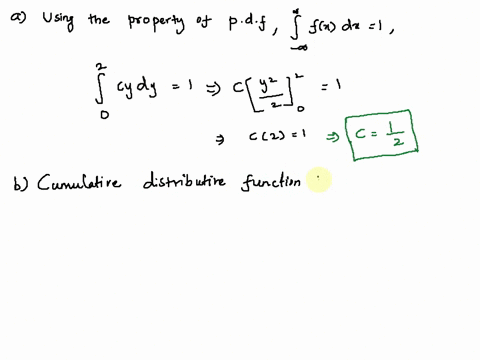 a) Using the property of p.d.f, ∫_{-∞}^{∞} f(x) dx = 1,
∫_{0}^{2} cy dy = 1 ⇒ C[y²/2]_{0}^{2} = 1
⇒ C(2) = 1 ⇒ C = 1/2
b) Cumulative distributive function